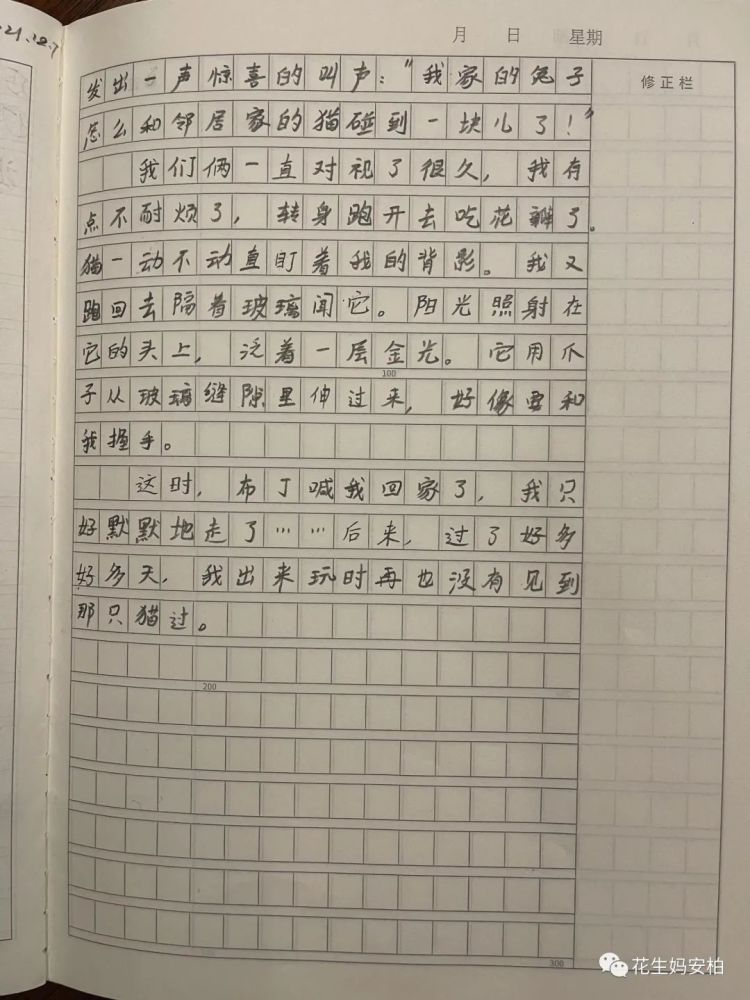 月 日 星期
修正栏
发出一声惊喜的叫声："我家的兔子
怎么和邻居家的猫碰到一块儿了！"
我们俩一直对视了很久，我有
点不耐烦了，转身跑开去吃花瓣了。
猫一动不动直盯着我的背影。我又
跑回去隔着玻璃闻它。阳光照射在
它的头上，泛着一层金光。它用爪
100
子从玻璃缝隙里伸过来，好像要和
我握手。
这时，布丁喊我回家了，我只
好默默地走了……后来，过了好多
好多天，我出来玩时再也没有见到
那只猫过。
200
300
花生妈安柏